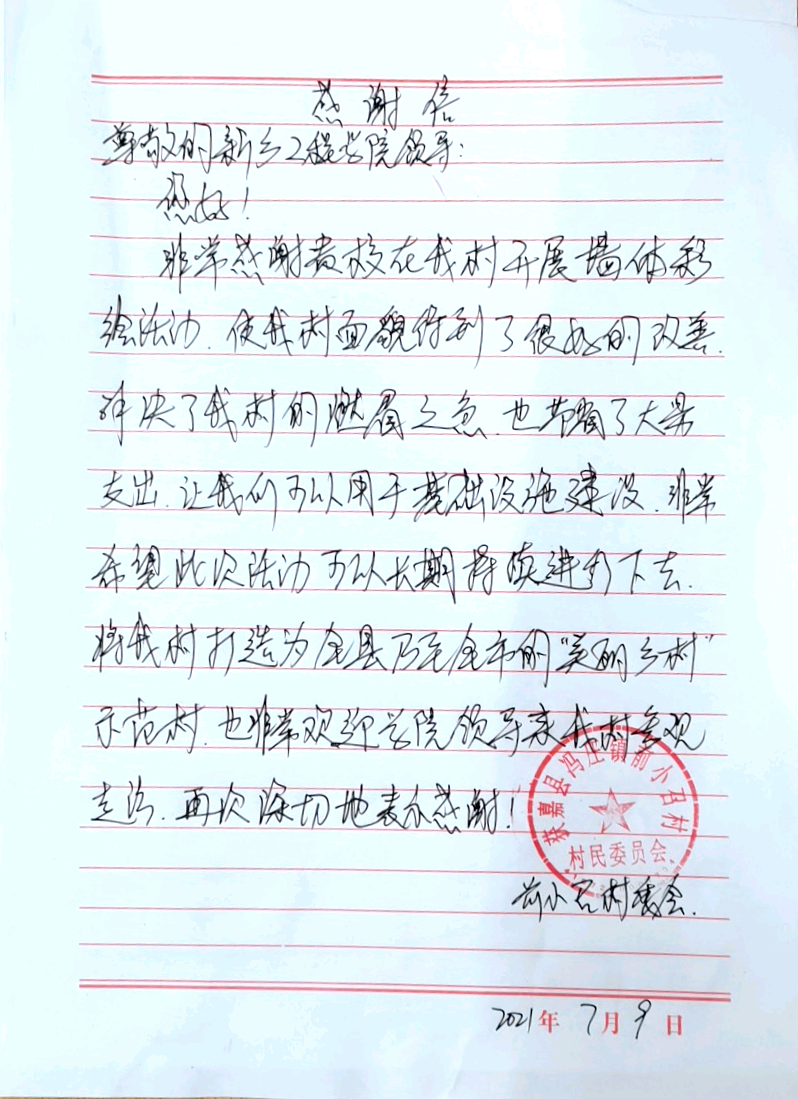 感谢信
尊敬的新乡工程学院领导：
您好！
非常感谢贵校在我村开展墙体彩
绘活动，使我村面貌得到了很好的改善，
解决了我村的燃眉之急，也节省了大量
支出，让我们可以用于基础设施建设，非常
希望此次活动可以长期持续进行下去，
将我村打造为全县乃至全市的“美丽乡村”
示范村，也非常欢迎学院领导来我村参观
走访，再次深切地表示感谢！
获嘉县冯庄镇前小召村
村民委员会
前小召村委会.
2021年7月9日